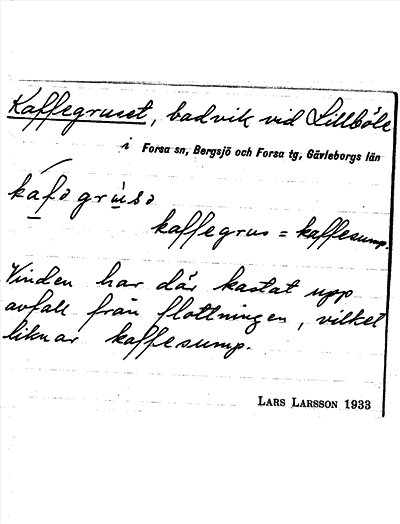 Kaffegruset, badvik vid Lillböle
i Forsa sn, Bergsjö och Forsa tg, Gävleborgs län
kafəgrusə
kaffegrus = kaffesump.
Vinden har där kastat upp
avfall från flottningen, vilket
liknar kaffesump.
LARS LARSSON 1933